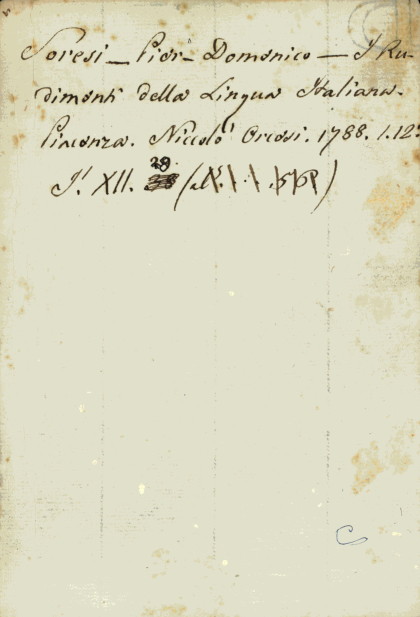 Soresi _ Pier _ Domenico — I Ru-
dimenti della Lingua Italiana.
Piacenza. Niccolò Orcesi. 1788. 1.12º
I'. XII. 28.